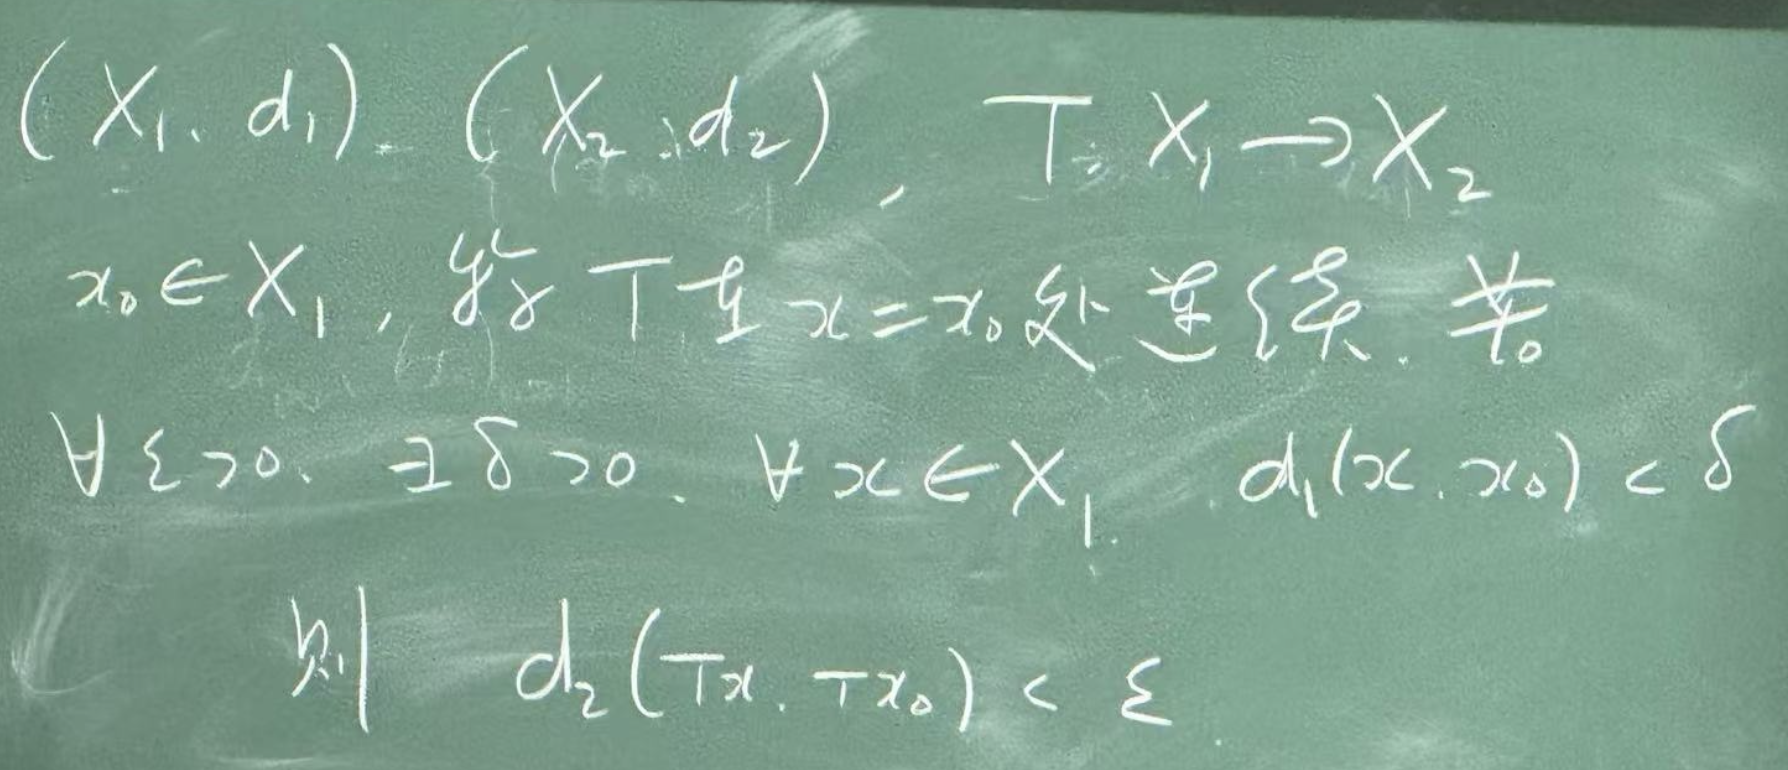 (X₁, d₁), (X₂, d₂), T: X₁→X₂
x₀∈X₁, 称 T 在 x=x₀处连续. 若
∀ε>0, ∃δ>0, ∀x∈X₁, d₁(x, x₀)<δ
则 d₂(Tx, Tx₀)<ε.